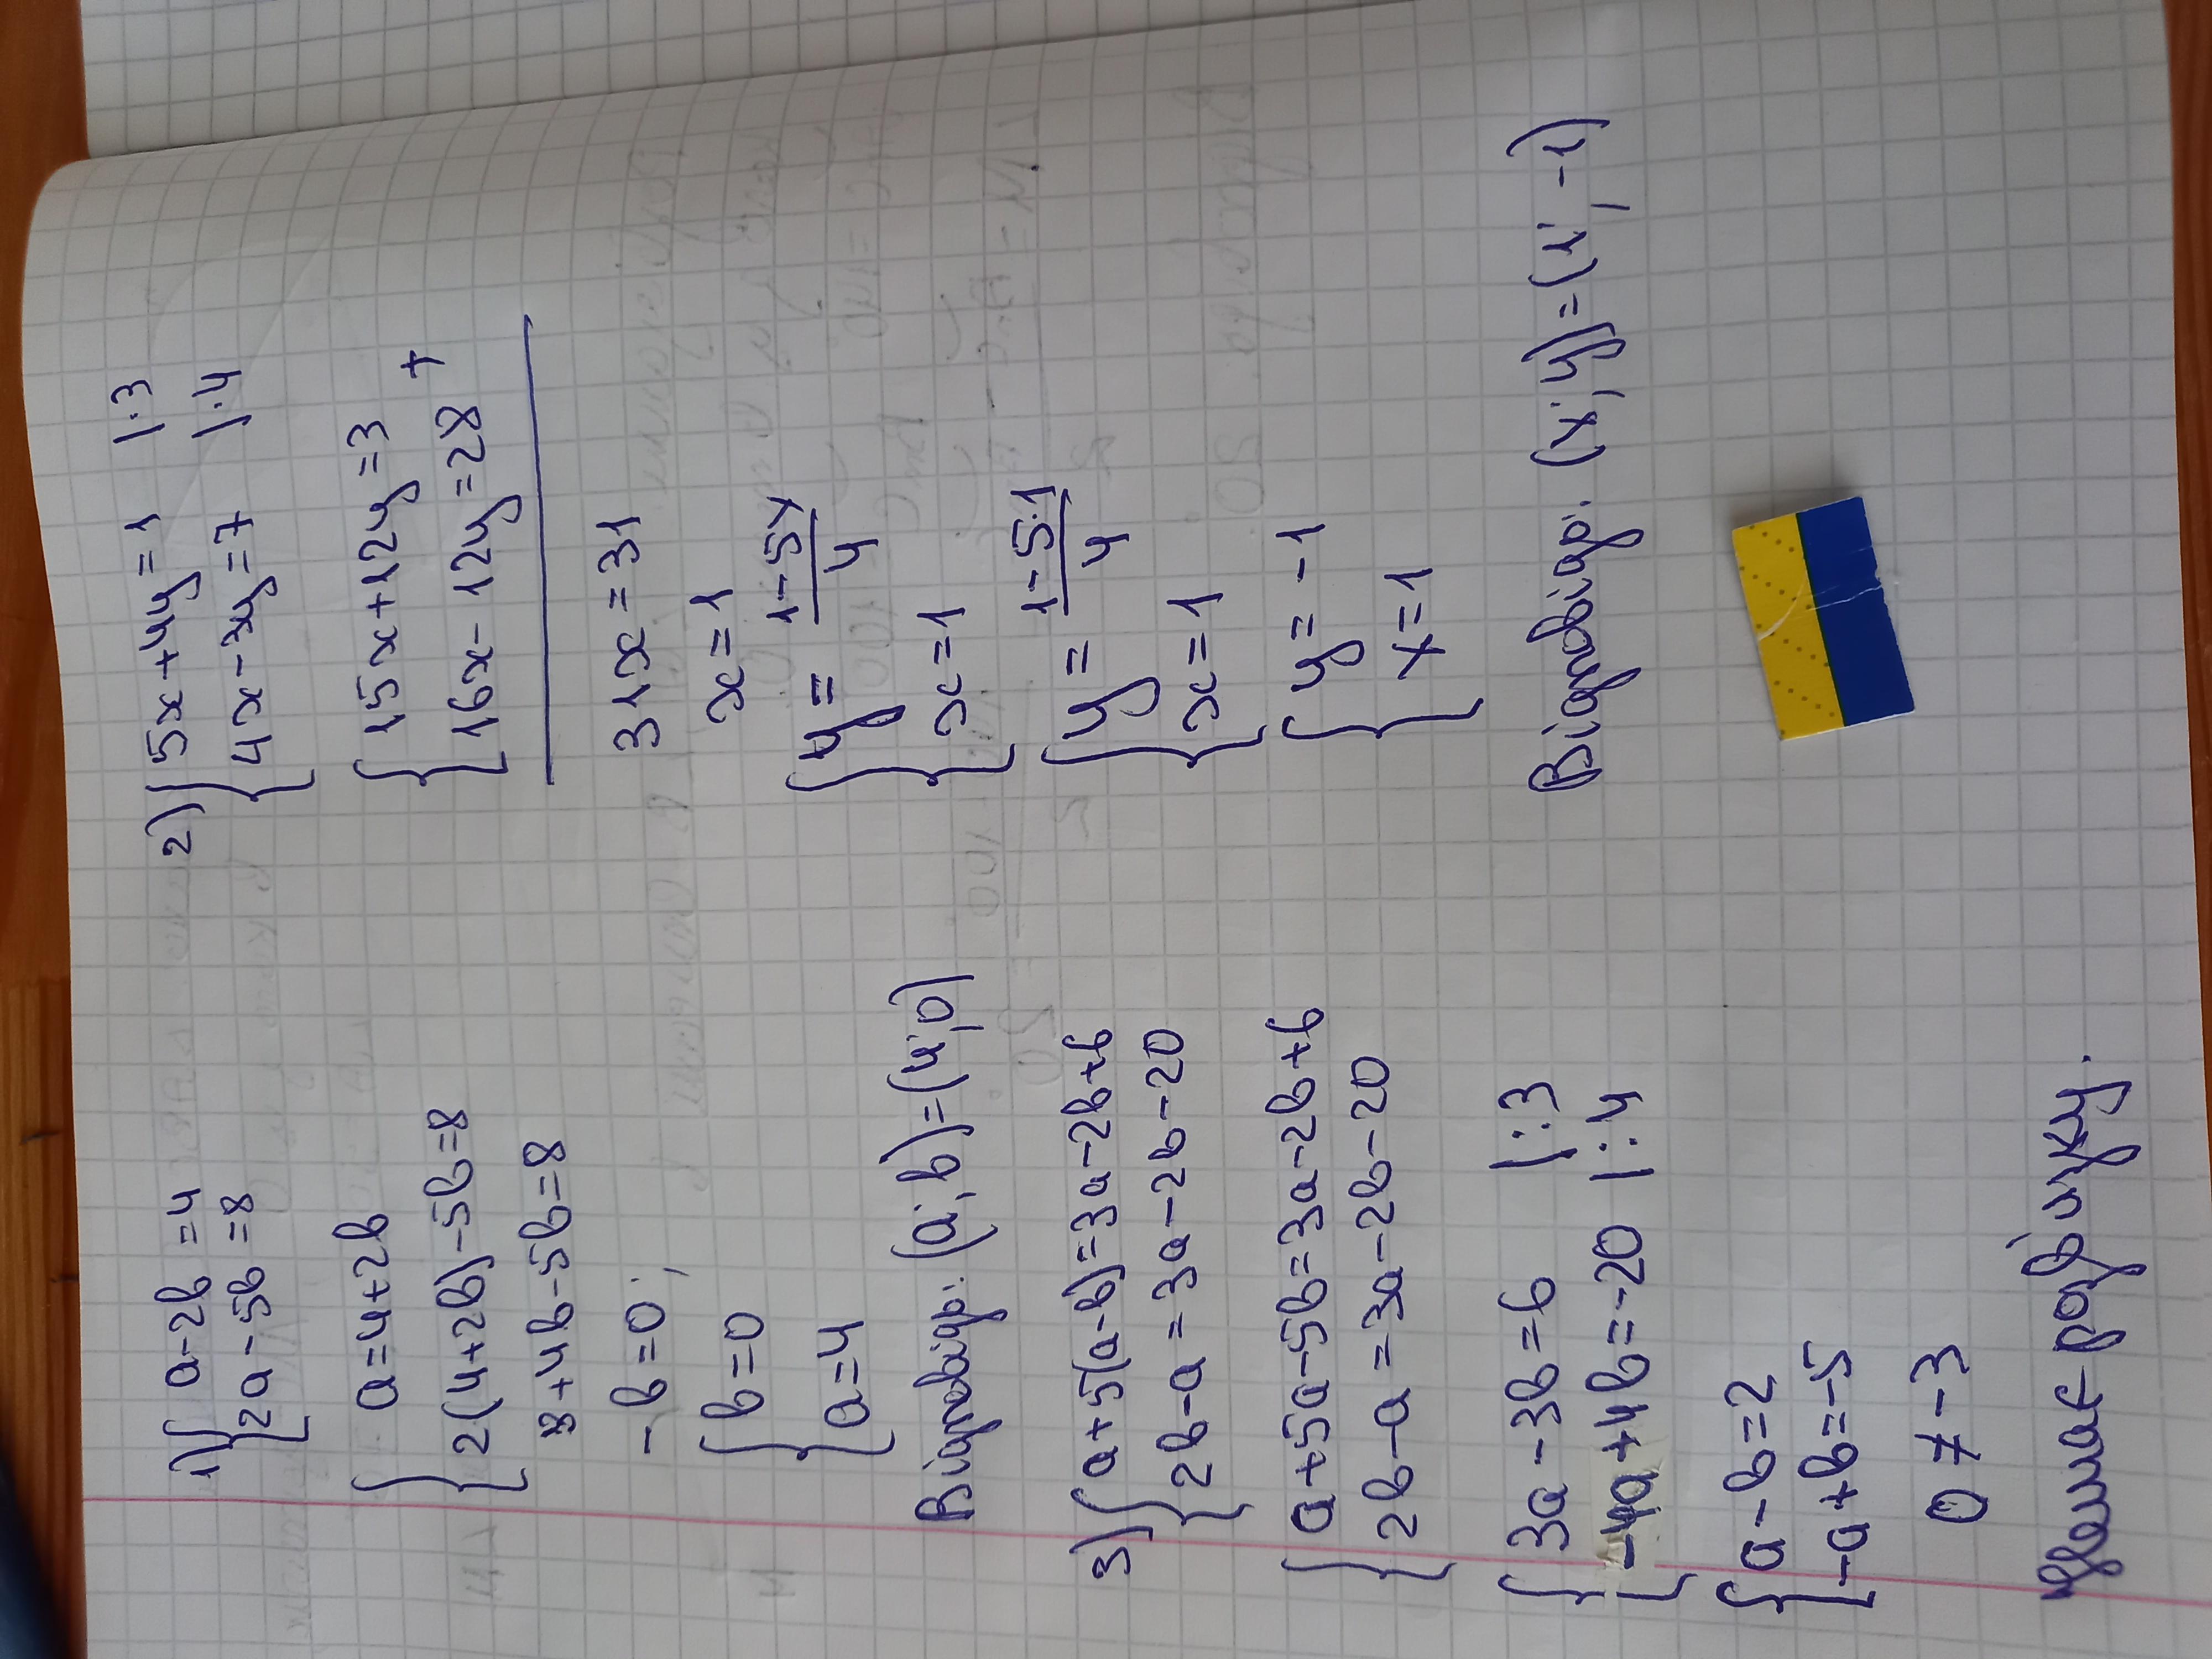 1) { a-2b=4
2a-5b=8
{ a=4+2b
2(4+2b)-5b=8
8+4b-5b=8
-b=0;
{ b=0
a=4
Відповідь: (a; b)=(4;0)
3) { a+5(a-b)=3a-2b+6
2b-a=3a-2b-20
{ a+5a-5b=3a-2b+6
2b-a=3a-2b-20
{ 3a-3b=6 |:3
-4a+4b=-20 |:4
{ a-b=2
-a+b=-5
0≠-3
Немає розв'язку.
2) { 5x+4y=1 |·3
4x-3y=7 |·4
{ 15x+12y=3
16x-12y=28 +
31x=31
x=1
{ y=(1-5x)/4
x=1
{ y=(1-5·1)/4
x=1
{ y=-1
x=1
Відповідь: (x; y)=(1; -1)